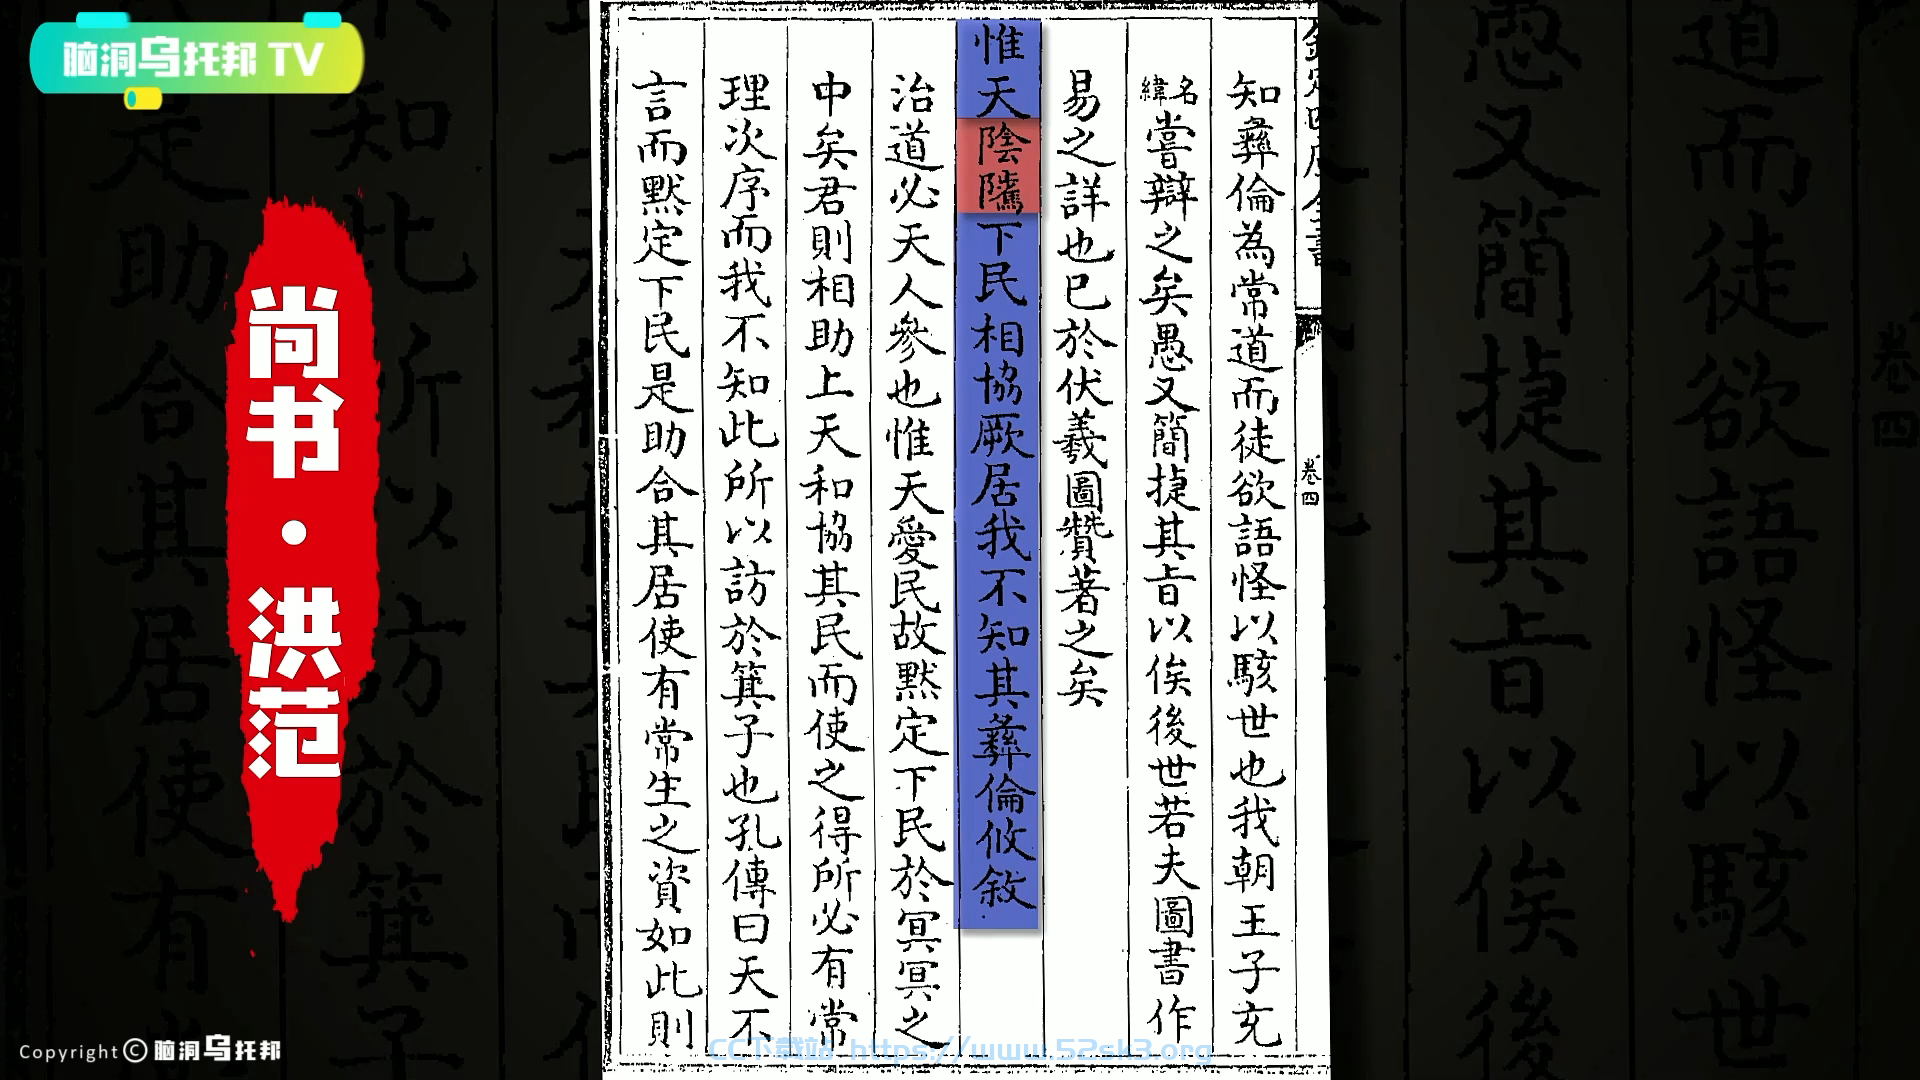 脑洞乌托邦 TV
尚书·洪范
卷四
知彝倫為常道而徒欲語怪以駭世也我朝王子充
名緯嘗辯之矣愚又簡捷其㫖以俟後世若夫圖書作
易之詳也已於伏羲圖贊著之矣
惟天陰隲下民相協厥居我不知其彝倫攸敘
治道必天人參也惟天愛民故默定下民於冥冥之
中矣君則相助上天和協其民而使之得所必有常
理次序而我不知此所以訪於箕子也孔傳曰天不
言而默定下民是助合其居使有常生之資如此則
Copyright © 脑洞乌托邦
CC下载站 https://www.52sk3.org